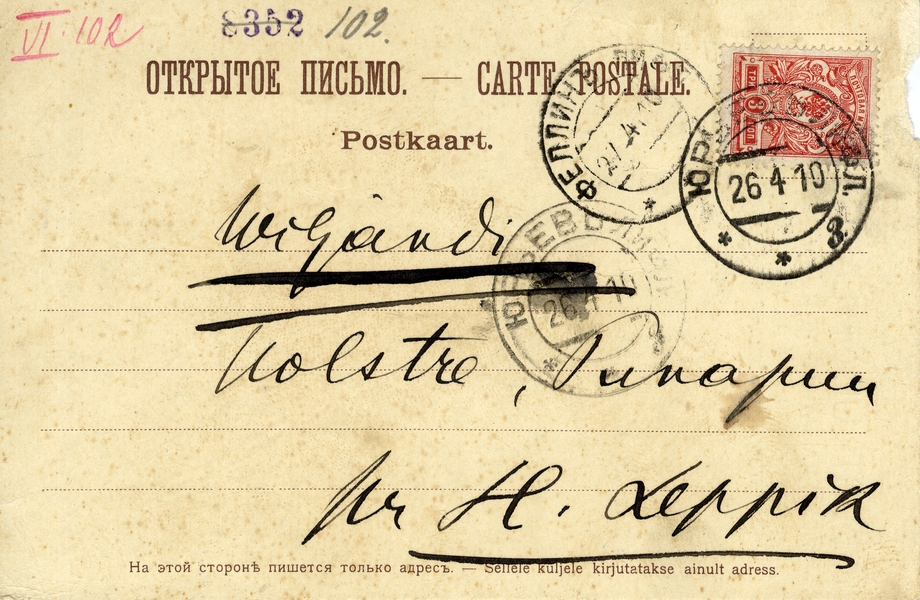 VI. 102
8352 102.
ОТКРЫТОЕ ПИСЬМО. — CARTE POSTALE.
Postkaart.
ФЕЛЛИНЪ
27.4.10
ЮРЬЕВЪ ЛИФЛ.
26 4 10
Wiljandi
ЮРЬЕВЪ ЛИФЛ.
26 4 10
Holstre,
pr H. Leppik
На этой сторонѣ пишется только адресъ. — Sellele küljele kirjutatakse ainult adress.